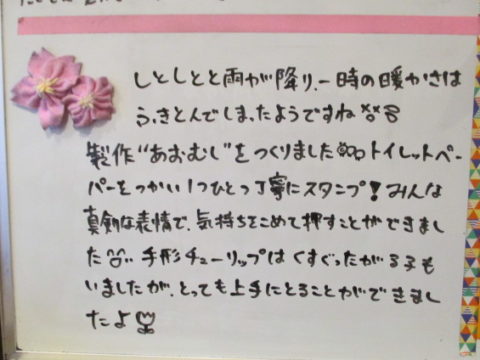 しとしとと雨が降り、一時の暖かさは
ふきとんでしまったようですね
製作“あおむし”をつくりました トイレットペー
パーをつかい1つひとつ丁寧にスタンプ！みんな
真剣な表情で、気持ちをこめて押すことができまし
た 手形チューリップはくすぐったがる子も
いましたが、とっても上手にとることができまし
たよ